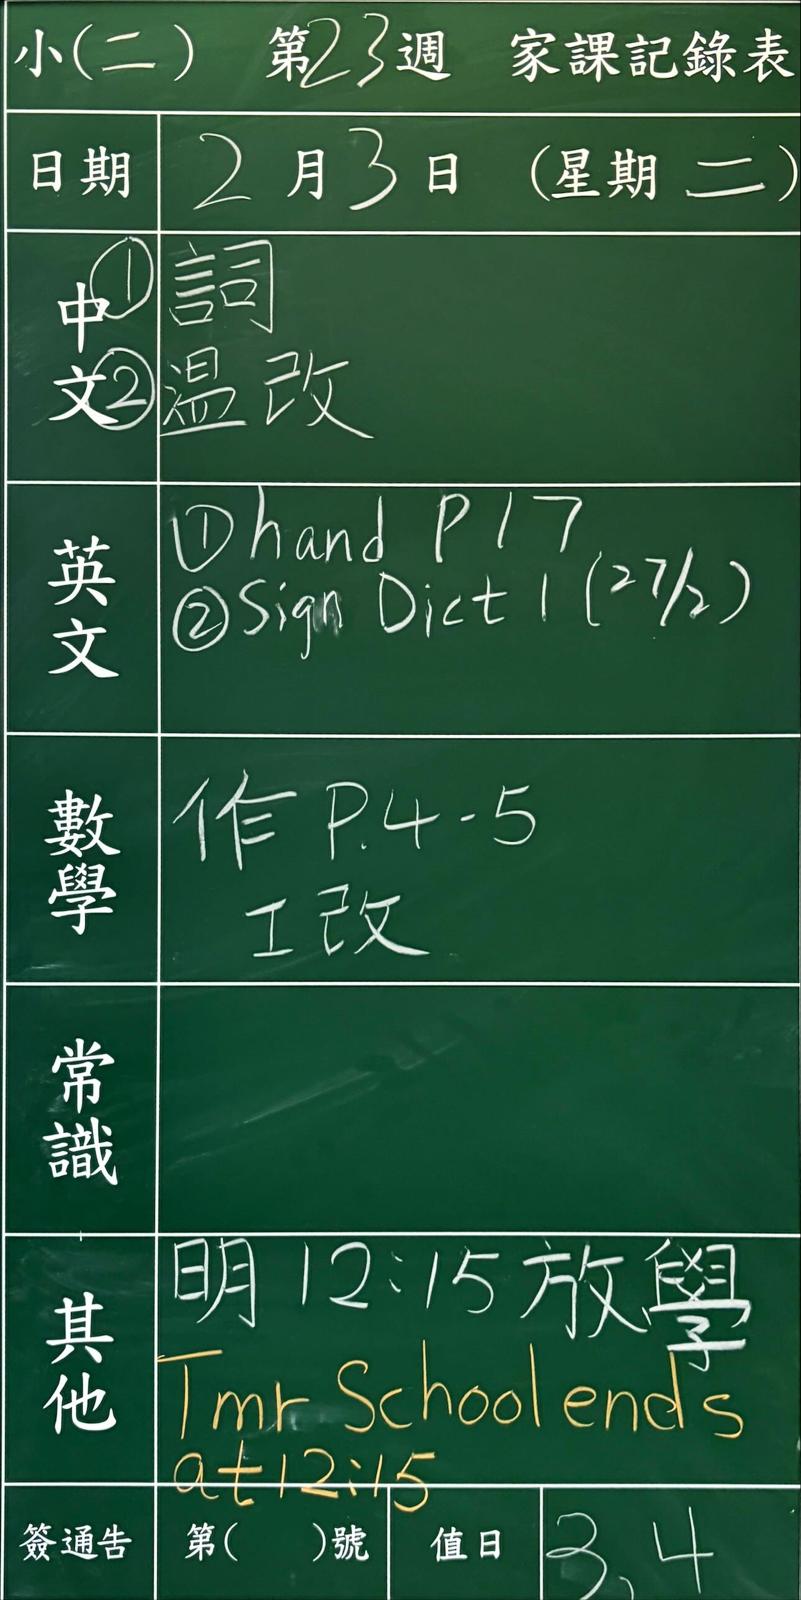 小(二) 第23週 家課記錄表
日期 2月3日 (星期二)
中文 ①詞
②温改
英文 ①hand P17
②Sign Dict 1 (27/2)
數學 作 P.4-5
工改
常識
其他 明12:15放學
Tmr School ends
at 12:15
簽通告 第( )號 值日 3,4